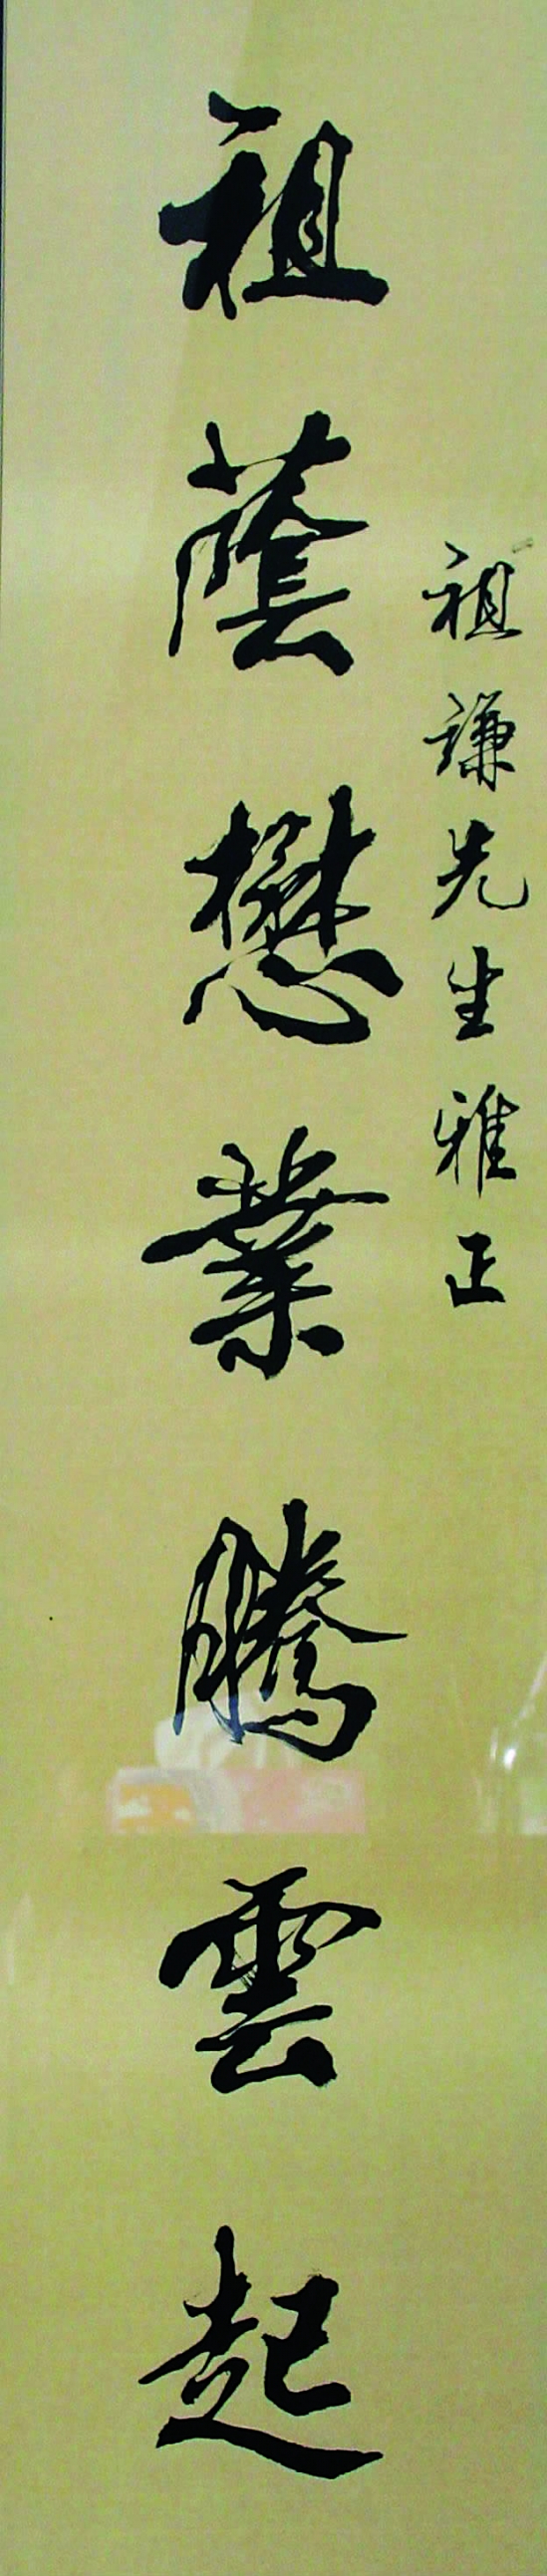 祖謙先生雅正
祖蔭懋業騰雲起